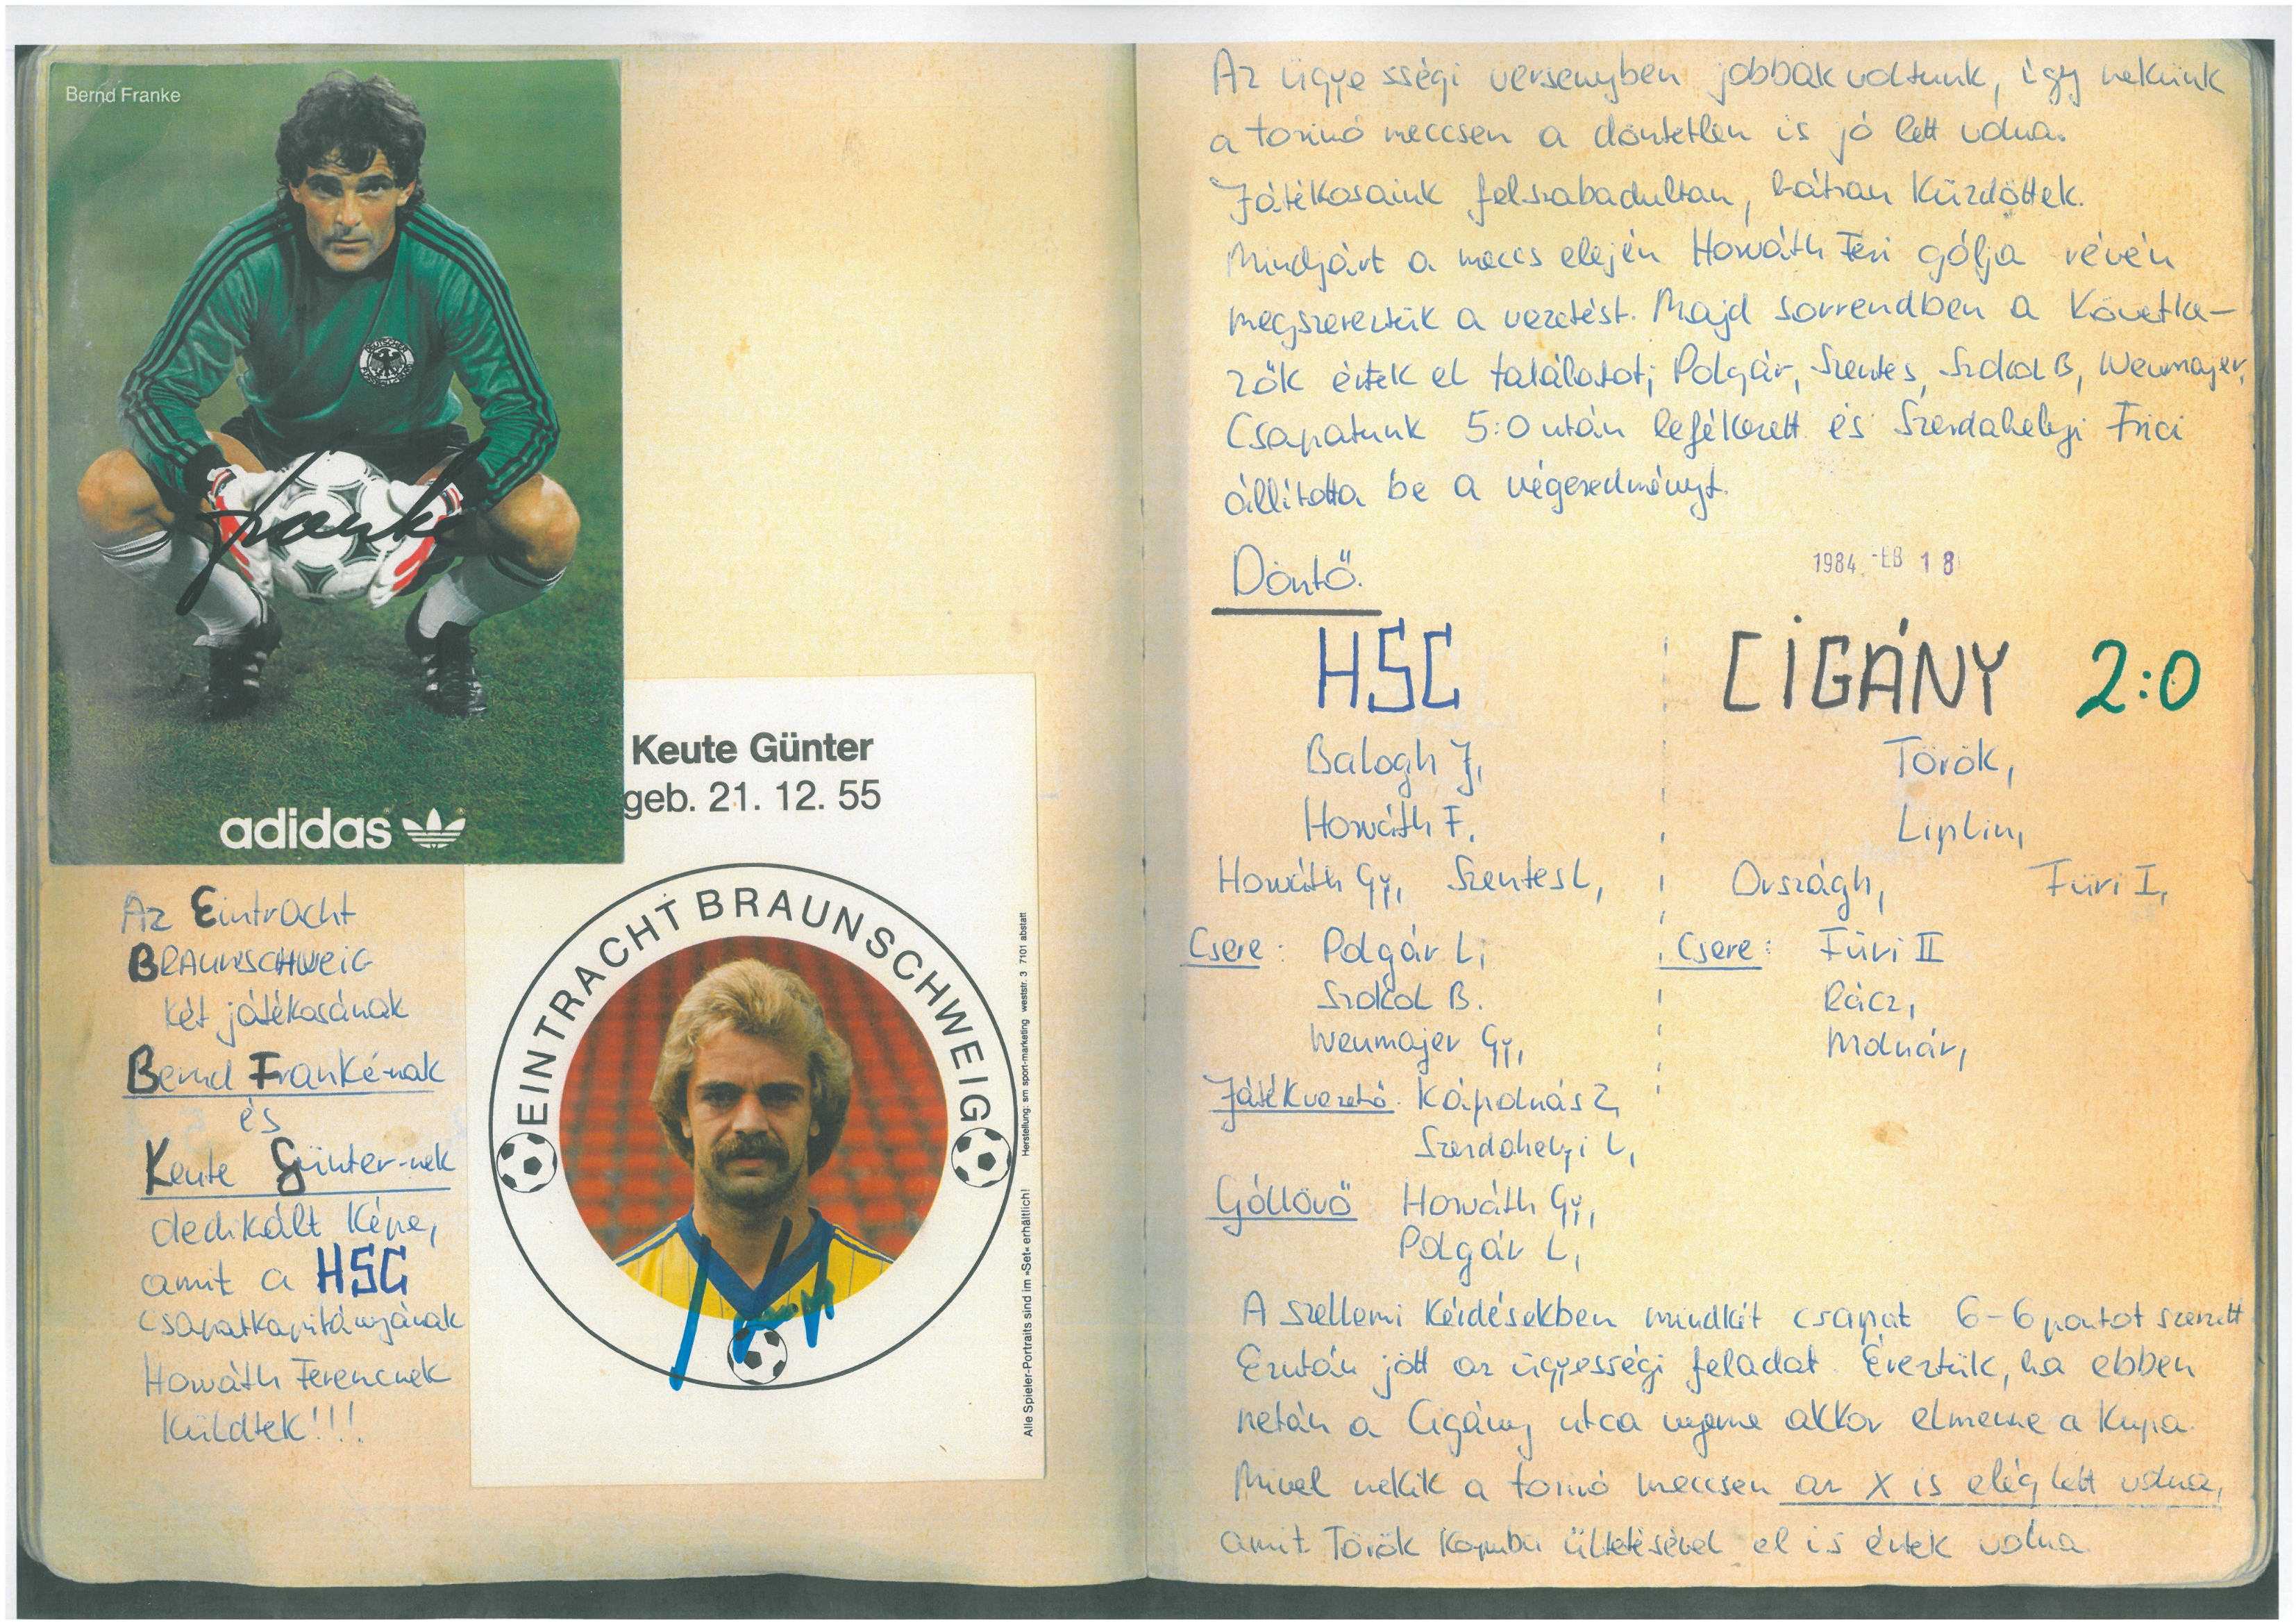 Bernd Franke
Franke
adidas
Keute Günter
geb. 21. 12. 55
EINTRACHT BRAUNSCHWEIG
Herstellung: sm sport-marketing weststr. 3 7101 abstatt
Alle Spieler-Portraits sind im »Set« erhältlich!
Az Eintracht
BRAUNSCHWEIG
két játékosának
Bernd Franké-nak
és
Keute Günter-nek
dedikált képe,
amit a HSC
csapatkapitányának
Horváth Ferencnek
küldtek!!!
Az ügyességi versenyben jobbak voltunk, így nekünk
a torinó meccsen a döntetlen is jó lett volna.
Játékosaink felszabadultan, bátran küzdöttek.
Mindjárt a meccs elején Horváth Feri gólja révén
megszereztük a vezetést. Majd sorrendben a követke-
zők értek el találatot; Polgár, Szentes, Szokol B, Weumajer,
Csapatunk 5:0 után lefékezett és Szerdahelyi Frici
állította be a végeredményt.
Döntő.
1984. -EB 18
HSC CIGÁNY 2:0
Balogh J, Török,
Horváth F. Liplin,
Horváth Gy, Szentes L, Országh, Füri I,
Csere: Polgár L, Csere: Füri II
Szokol B. Rácz,
Weumajer Gy, Molnár,
Játékvezető: Kápolnás Z,
Szerdahelyi L,
Góllövő Horváth Gy,
Polgár L,
A szellemi kérdésekben mindkét csapat 6-6 pontot szerzett
Ezután jött az ügyességi feladat. Éreztük, ha ebben
netán a Cigány utca nyerne akkor elmenne a kupa.
Mivel nekik a torinó meccsen az X is elég lett volna,
amit Török kapuba ültetésével el is értek volna